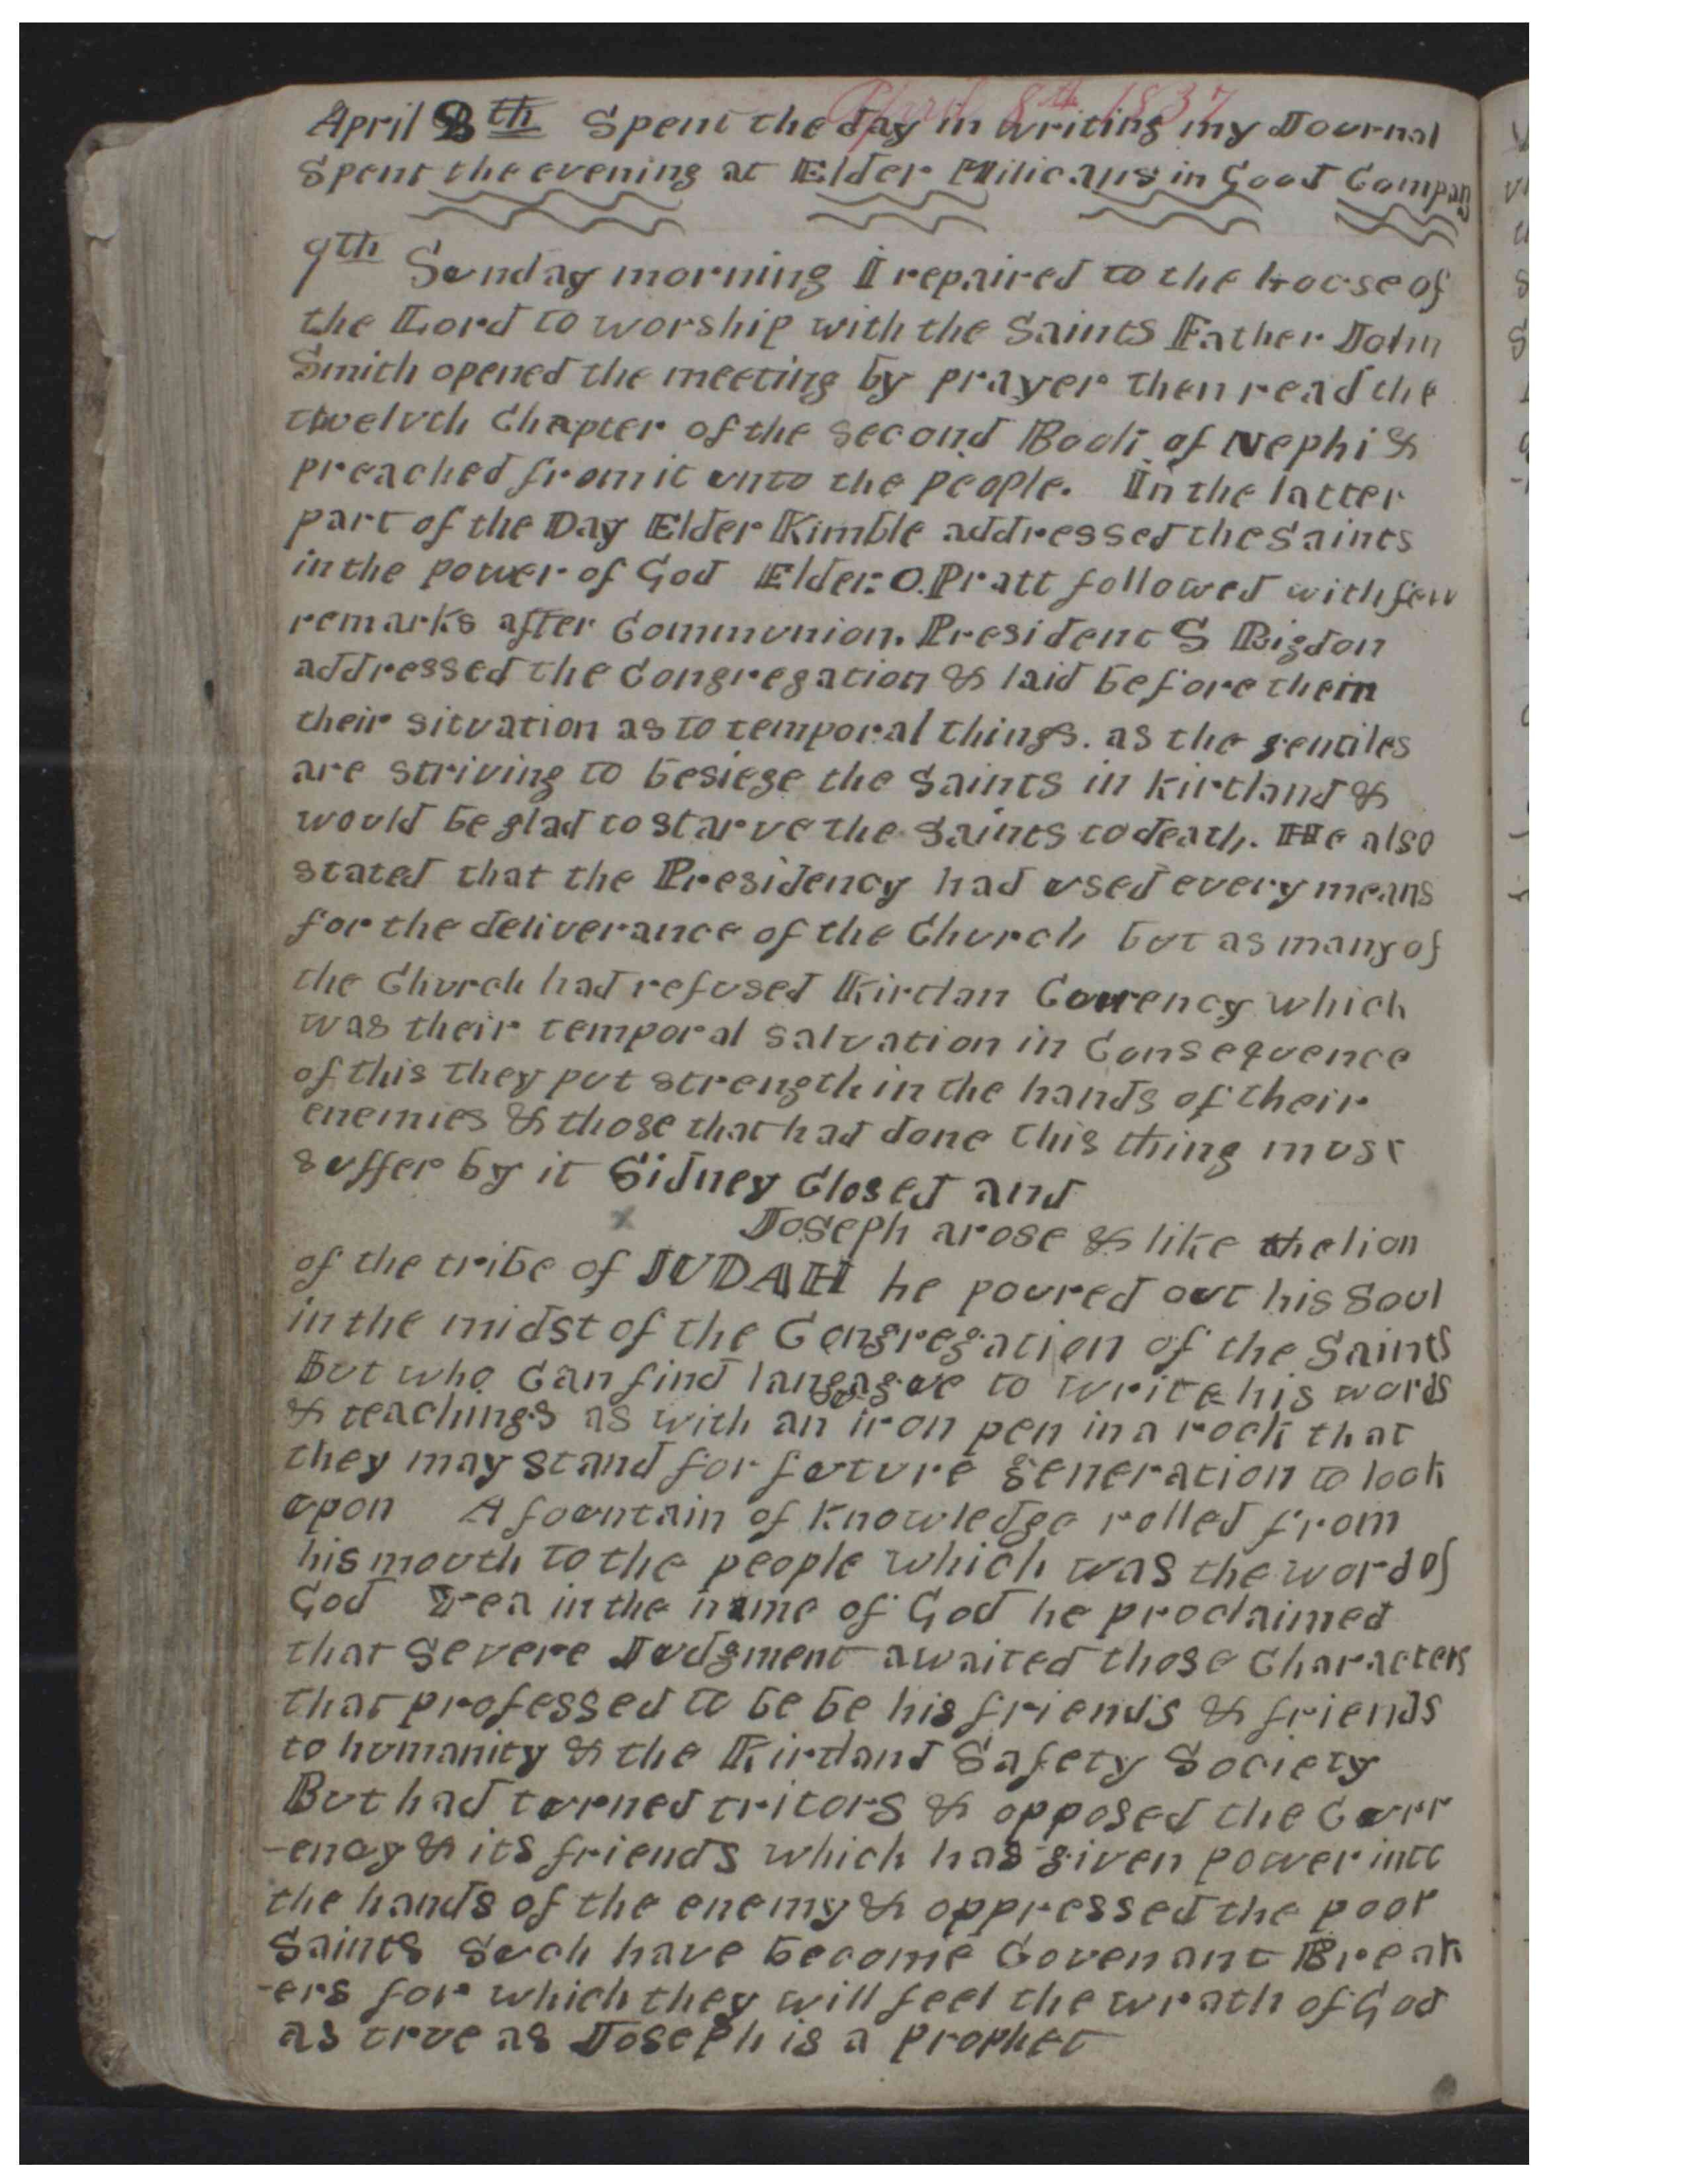 April 8th 1837
April 8th Spent the day in writing my Journal
Spent the evening at Elder Milicans in Good Company
9th Sunday morning I repaired to the house of
the Lord to worship with the Saints Father John
Smith opened the meeting by prayer then read the
twelvth Chapter of the second Book of Nephi &
preached from it unto the people. In the latter
part of the Day Elder Kimble addressed the Saints
in the power of God Elder: O. Pratt followed with few
remarks after Communion. President S Rigdon
addressed the Congregation & laid before them
their situation as to temporal things. as the gentiles
are striving to besiege the Saints in Kirtland &
would be glad to starve the Saints to death. He also
stated that the Presidency had used every means
for the deliverance of the Church but as many of
the Church had refused Kirtlan Currency which
was their temporal salvation in Consequence
of this they put strength in the hands of their
enemies & those that had done this thing must
suffer by it Sidney Closed and
x Joseph arose & like the lion
of the tribe of JUDAH he poured out his Soul
in the midst of the Congregation of the Saints
But who Can find langague to write his words
& teachings as with an iron pen in a rock that
they may stand for future generation to look
upon A fountain of knowledge rolled from
his mouth to the people which was the word of
God Yea in the name of God he proclaimed
that severe Judgment awaited those Characters
that professed to be be his friends & friends
to humanity & the Kirtland Safety Society
But had turned tritors & opposed the Curr
-ency & its friends which has given power into
the hands of the enemy & oppressed the poor
Saints Such have become Covenant Break
-ers for which they will feel the wrath of God
as true as Joseph is a prophet